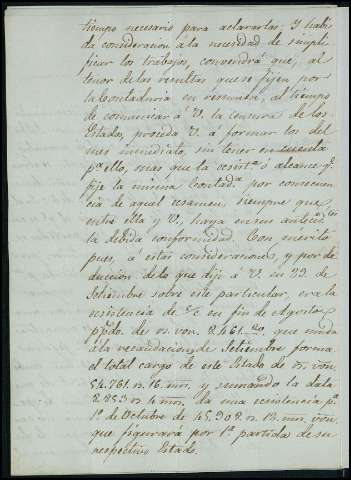 tiempo necesario para aclararlas; Y habi-
da consideracion á la necesidad de simpli-
ficar los trabajos, convendrá que, al
tenor de las resultas que se fijen por
la Contaduría en resumen, al tiempo
de comunicar á V. la censura de los
Estados, proceda V. á formar los del
mes inmediato, sin tener en cuenta
pª ello, mas que la exist.ª ó alcance q.
fije la misma Contad.ª por consecuen
cia de aquel resamen, siempre que
entre ella y V. haya en sus
la debida conformidad. Con mérito
pues, á estas consideraciones, y por de-
duccion de lo que dije á V. en 22 de
Setiembre sobre este particular, era la
existencia de en fin de Agosto
ppdo. de rs. von. 2.461 que unida
á la recaudacion de Setiembre forma
el total cargo de este Estado de rs. von.
54.761 rs. 16 mrs. y sumando la data
2.853 rs. 4 mrs. da una existencia pª
1º de Octubre de 45.908 rs. 13 mrs. von.
que figurará por 1ª partida de su
respectivo Estado.